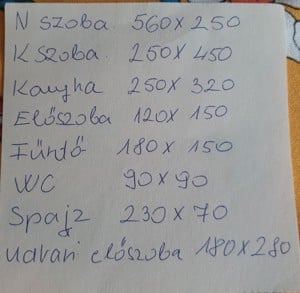 N szoba 560 x 250
K szoba 250 x 450
Konyha 250 x 320
Előszoba 120 x 150
Fürdő 180 x 150
WC 90 x 90
Spajz 230 x 70
Udvari előszoba 180 x 280